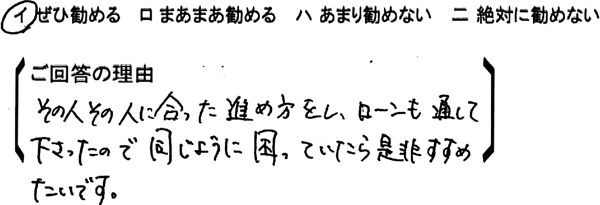 イ ぜひ勧める ロ まあまあ勧める ハ あまり勧めない ニ 絶対に勧めない
ご回答の理由
その人その人に合った進め方をし、ローンも通して
下さったので同じように困っていたら是非すすめ
たいです。